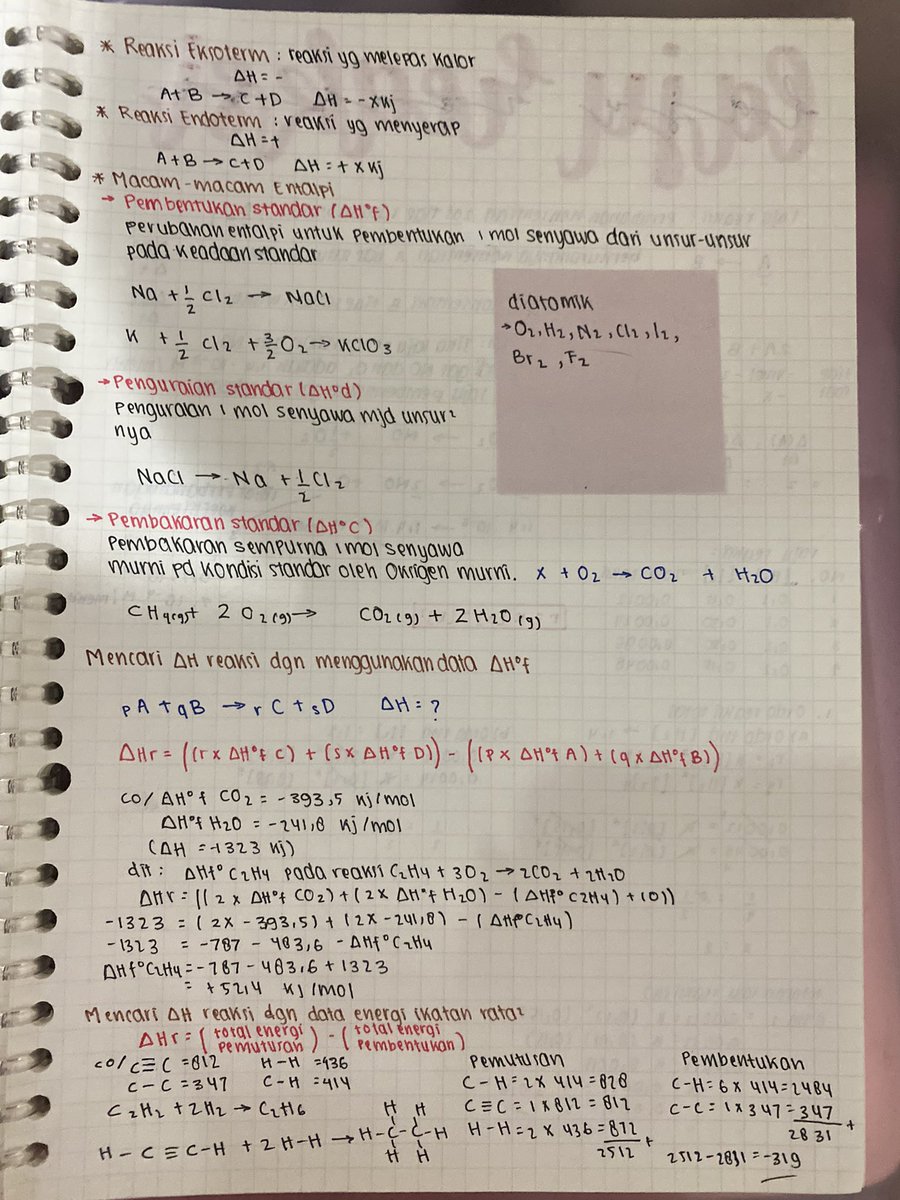 * Reaksi Eksoterm : reaksi yg melepas kalor
ΔH = -
A+B → C+D ΔH = -xkj
* Reaksi Endoterm : reaksi yg menyerap
ΔH = +
A+B → C+D ΔH = + x kj
* Macam-macam Entalpi
→ Pembentukan standar (ΔH°f)
perubahan entalpi untuk pembentukan 1 mol senyawa dari unsur-unsur
pada keadaan standar
Na + 1/2 Cl₂ → NaCl
K + 1/2 Cl₂ + 3/2 O₂ → KClO₃
diatomik
→ O₂, H₂, N₂, Cl₂, I₂,
Br₂, F₂
→ Penguraian standar (ΔH°d)
Penguraian 1 mol senyawa mjd unsur²
nya
NaCl → Na + 1/2 Cl₂
→ Pembakaran standar (ΔH°C)
Pembakaran sempurna 1 mol senyawa
murni pd kondisi standar oleh Oksigen murni. X + O₂ → CO₂ + H₂O
CH₄(g)+ 2 O₂(g) → CO₂(g) + 2 H₂O(g)
Mencari ΔH reaksi dgn menggunakan data ΔH°f
pA + qB → rC + sD ΔH = ?
ΔHr = ((r x ΔH°f C) + (s x ΔH°f D)) - ((p x ΔH°f A) + (q x ΔH°f B))
co/ ΔH°f CO₂ = -393,5 kj/mol
ΔH°f H₂O = -241,8 kj/mol
(ΔH = -1323 kj)
dit : ΔHf° C₂H₄ pada reaksi C₂H₄ + 3O₂ → 2CO₂ + 2H₂O
ΔHr = ((2 x ΔH°f CO₂) + (2 x ΔH°f H₂O) - (ΔHf° C₂H₄) + (0))
-1323 = (2x -393,5) + (2x -241,8) - (ΔHf°C₂H₄)
-1323 = -787 - 483,6 - ΔHf°C₂H₄
ΔHf°C₂H₄ = -787 - 483,6 + 1323
= +52,4 kj/mol
Mencari ΔH reaksi dgn data energi ikatan rata²
ΔHr = (total energi pemutusan) - (total energi pembentukan)
co/ C≡C = 812 H-H = 436
C-C = 347 C-H = 414
C₂H₂ + 2H₂ → C₂H₆
H H
H-C≡C-H + 2 H-H → H-C-C-H
H H
Pemutusan
C-H = 2 x 414 = 828
C≡C = 1 x 812 = 812
H-H = 2 x 436 = 872 +
2512
Pembentukan
C-H = 6 x 414 = 2484
C-C = 1 x 347 = 347 +
2831
2512 - 2831 = -319